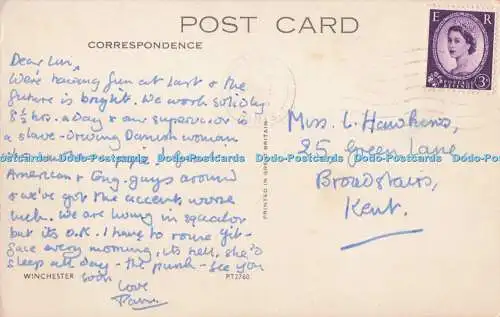 POST CARD
CORRESPONDENCE
E R
POSTAGE REVENUE
3D
Dear Luvi,
We're having fun at last & the
future is bright. We work solidly
8½ hrs. a day & our supervisor is
a slave-driving Danish woman
American & Eng. guys around
& we've got the accent, worse
luck. We are living in squalor
but its O.K. I have to rouse Gil-
face every morning, its hell, she'd
sleep all day - the punk - See you
soon
love
Pam.
Miss. L. Hawkins,
25 Green Lane
Broadstairs,
Kent.
PRINTED IN GREAT BRITAIN
WINCHESTER
PT2760
Postcards